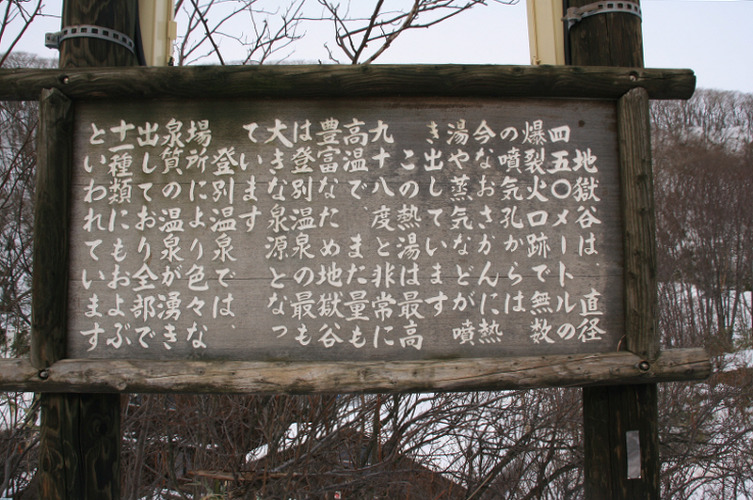 地獄谷は　直径
四五〇メートルの
爆裂火口跡で無数
の噴気孔からは
今なおさかんに熱
湯や蒸気などが噴
き出しています
この熱湯は最高
九十八度と非常に
高温で　また量も
豊富なため地獄谷
は登別温泉の最も
大きな泉源となっ
ています
登別温泉では、
場所により色々な
泉質の温泉が湧き
出しており全部で
十一種類にもおよぶ
といわれています